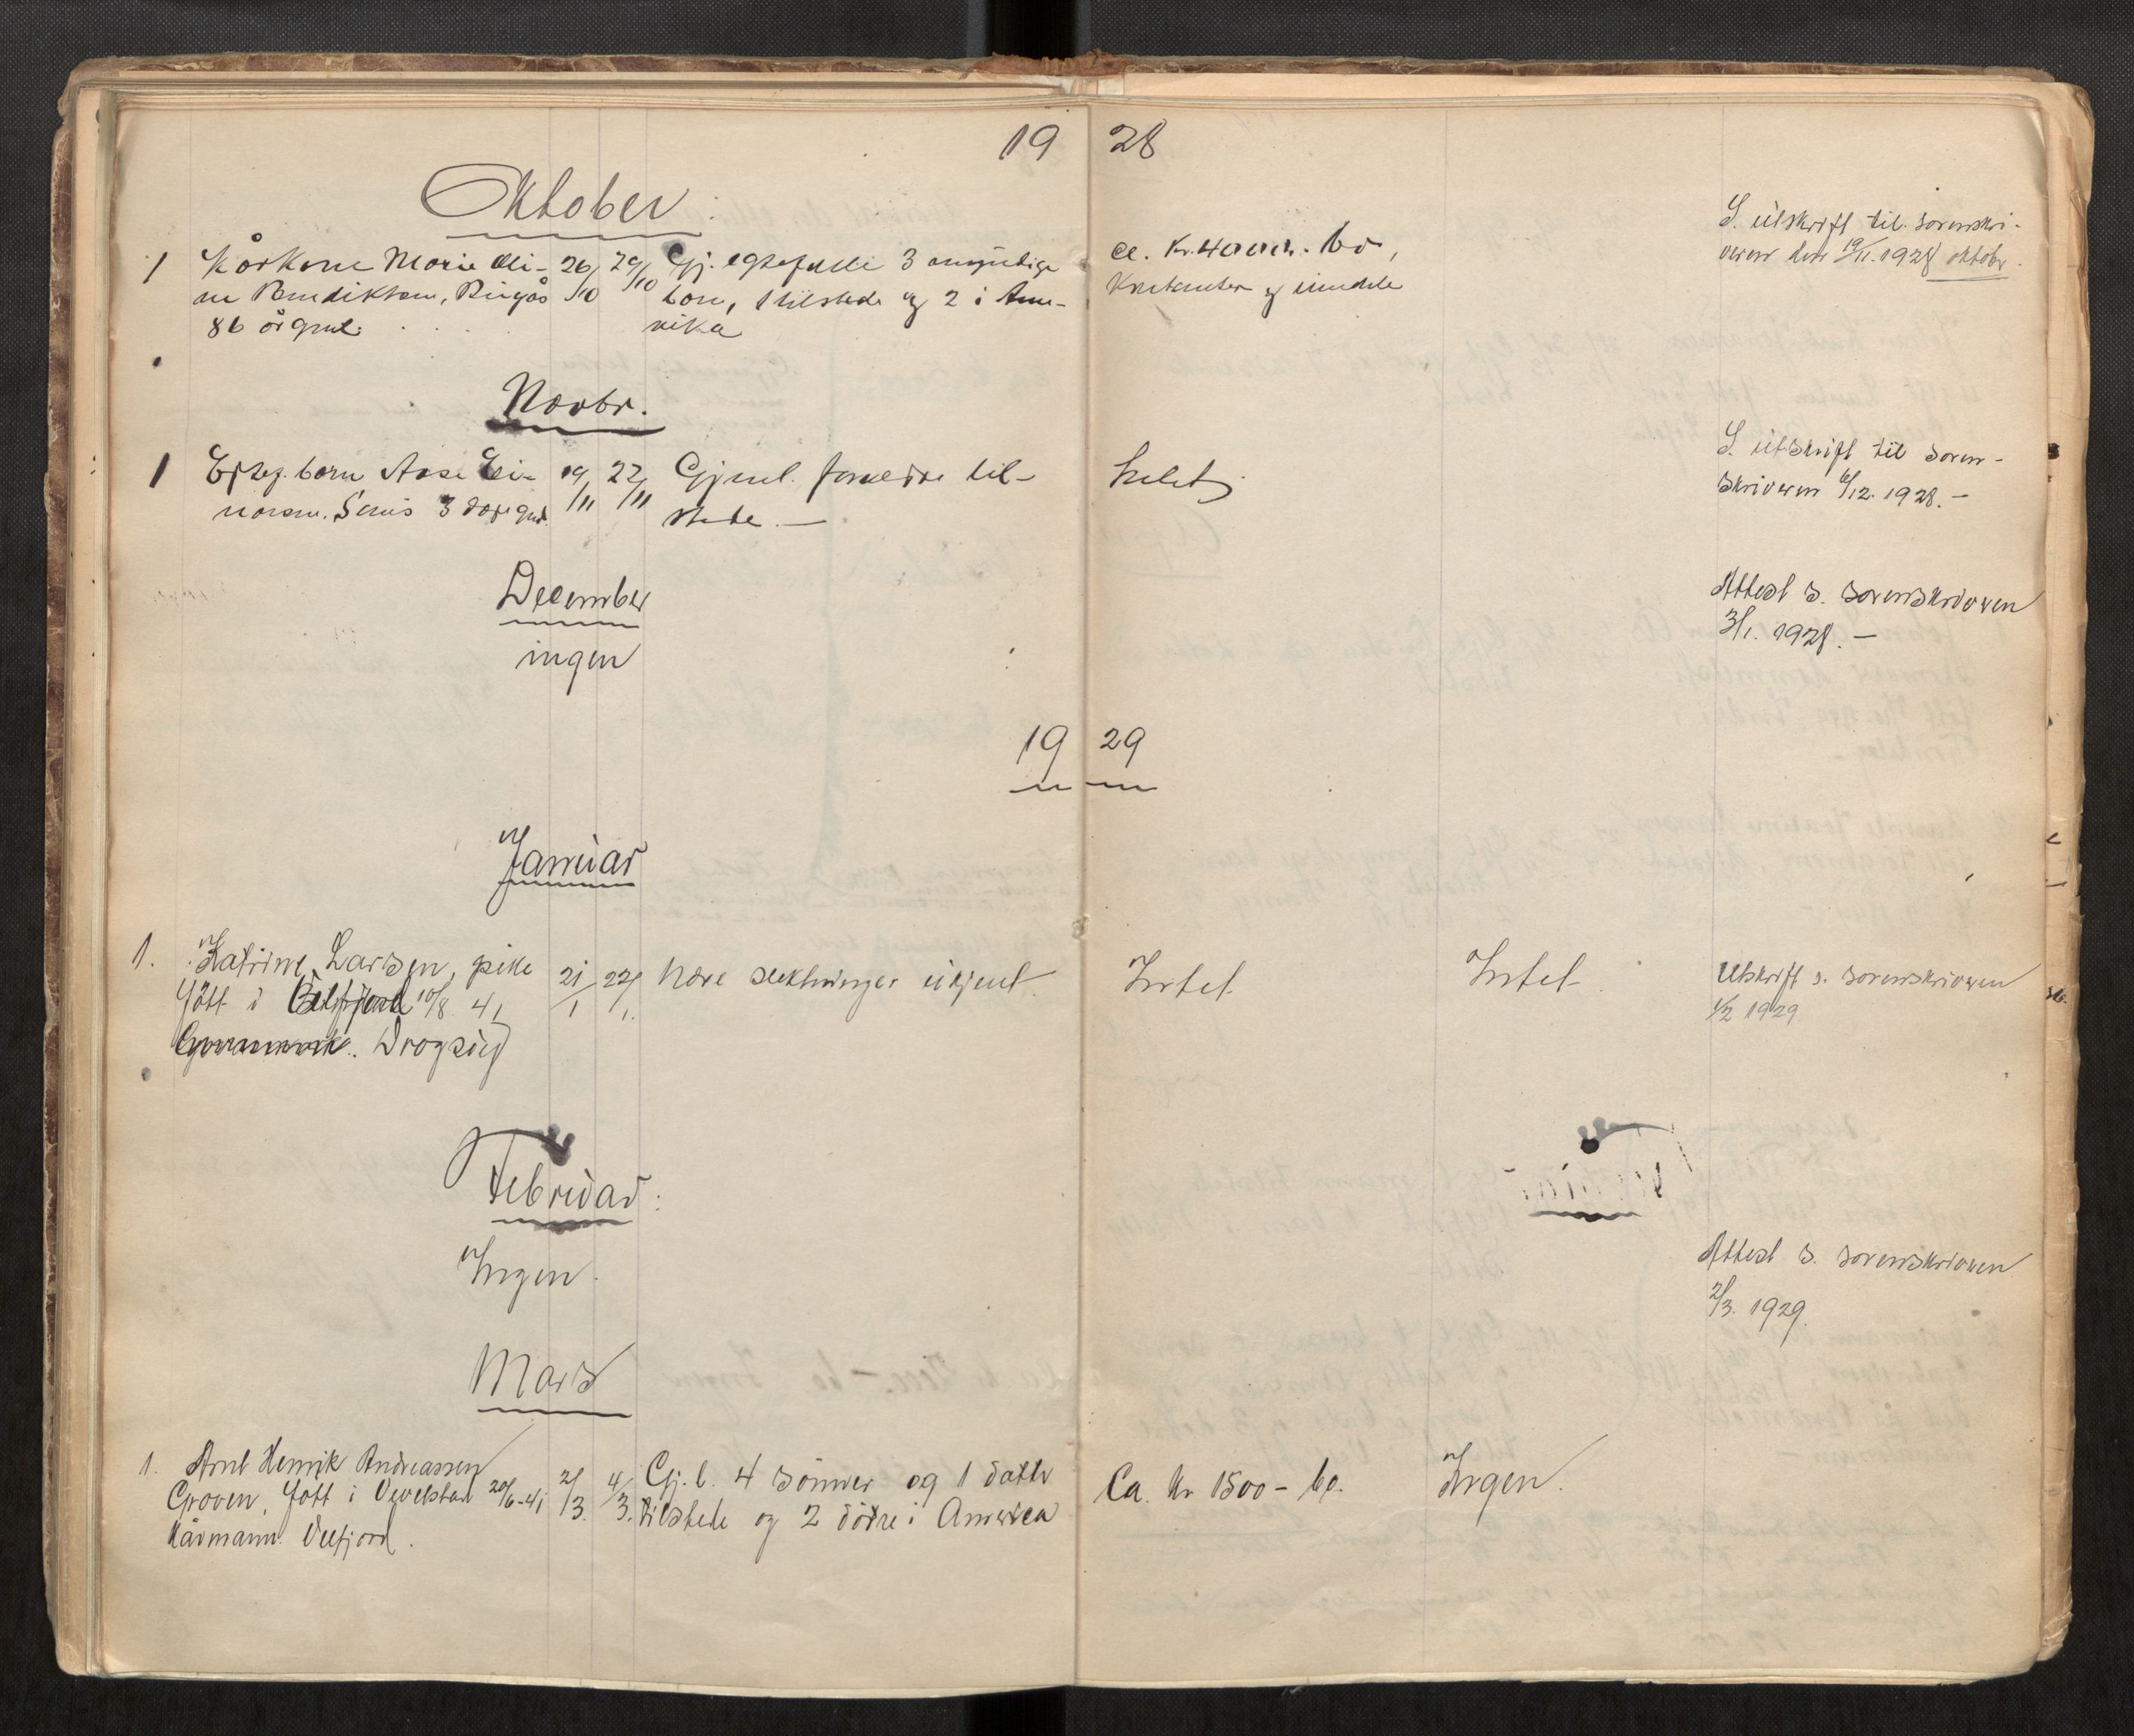 19 28
Oktober
1 Kårkone Marie Eli- 26/10 29/10 Gj. egtefælle 3 umyndige
ne Bendiktsen, 86 år gml. barn, 1 tilstede og 2 i Ame-
rika
ca. kr. 4000.- bo,
Kontanter og inndele
S. utskrift til sorenskri-
veren den 19/11.1928 oktober.
Novbr.
1 Egtef. barn Aase Ei- 19/11 22/11 Gjenl. foreldre til-
narsen. 3 dage gml. stede. —
Intet
S. utskrift til soren-
skriveren 6/12. 1928. —
December
ingen
Attest s. sorenskriveren
3/1. 1928. —
19 29
Januar
1. Katrine Larsen, pike 21/1 22/1. Nære slektninger ukjent
født i 10/8. 41
Intet. Intet
Utskrift s. sorenskriveren
1/2 1929
Februar:
Ingen.
Attest s. sorenskriveren
2/3. 1929.
Mars
1. Arnt Henrik Andreassen
Groven, født i Vevelstad 20/6-41 2/3. 4/3. Gj. l. 4 sønner og 1 datter
Kårmann. Velfjord. tilstede og 2 døtre i America
Ca. kr 1500 - bo. Ingen.